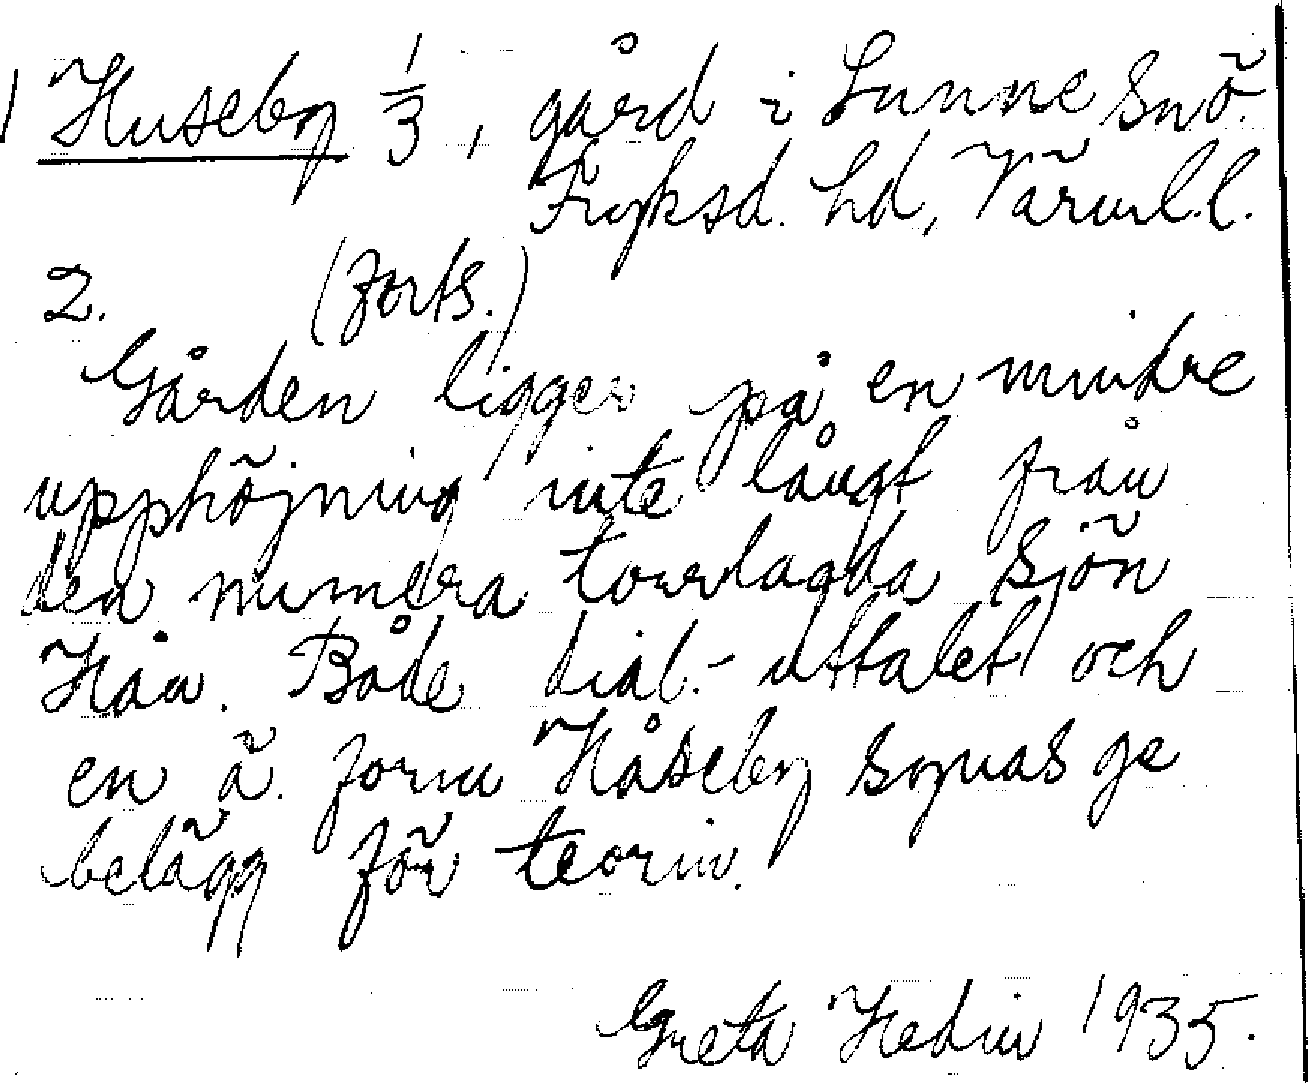 Huseby 1/3, gård i Sunne snö.
Fryksd. hd, Värml.l.
2. (Forts.)
Gården ligger på en mindre
upphöjning inte långt från
den numera torrlagda sjön
Hån. Både dial.-uttalet och
en ä. form Håseby synas ge
belägg för teorin.
Greta Hedin 1935.